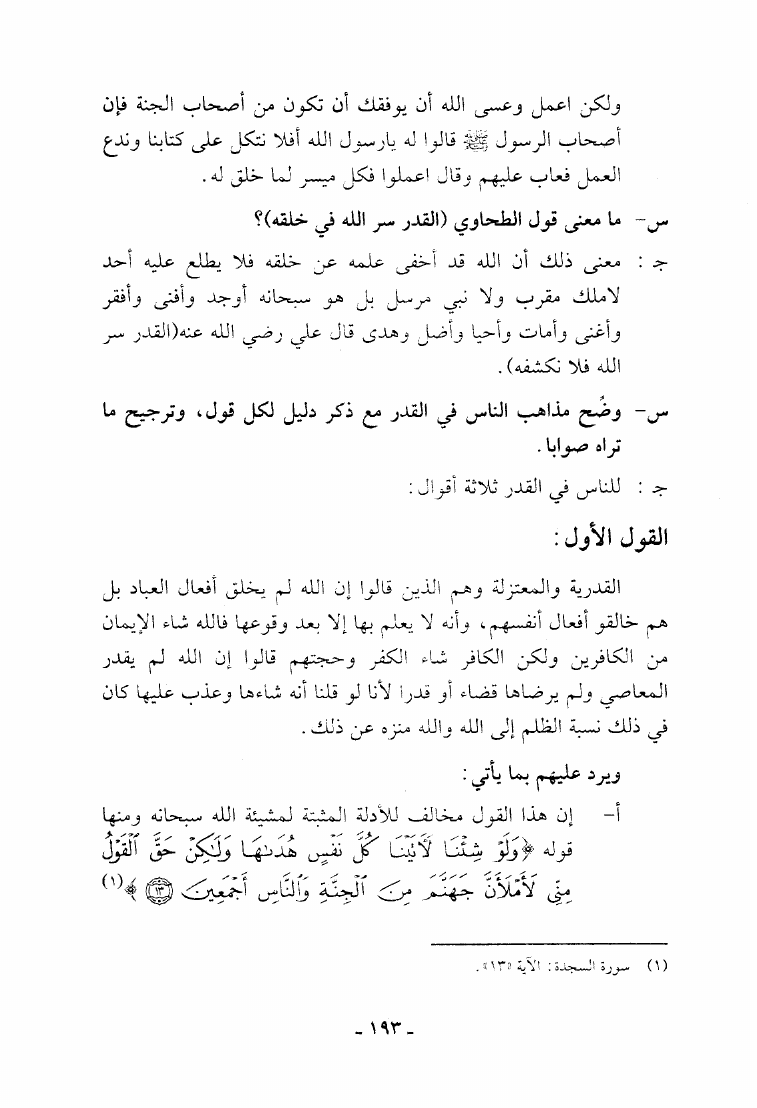 ولكن اعمل وعسى الله أن يوفقك أن تكون من أصحاب الجنة فإن
أصحاب الرسول ﷺ قالوا له يارسول الله أفلا نتكل على كتابنا وندع
العمل فعاب عليهم وقال اعملوا فكل ميسر لما خلق له.
س- ما معنى قول الطحاوي (القدر سر الله في خلقه)؟
جـ : معنى ذلك أن الله قد أخفى علمه عن خلقه فلا يطلع عليه أحد
لاملك مقرب ولا نبي مرسل بل هو سبحانه أوجد وأفنى وأفقر
وأغنى وأمات وأحيا وأضل وهدى قال علي رضي الله عنه(القدر سر
الله فلا نكشفه).
س- وضّح مذاهب الناس في القدر مع ذكر دليل لكل قول، وترجيح ما
تراه صوابا.
جـ : للناس في القدر ثلاثة أقوال:
القول الأول:
القدرية والمعتزلة وهم الذين قالوا إن الله لم يخلق أفعال العباد بل
هم خالقو أفعال أنفسهم، وأنه لا يعلم بها إلا بعد وقوعها فالله شاء الإيمان
من الكافرين ولكن الكافر شاء الكفر وحجتهم قالوا إن الله لم يقدر
المعاصي ولم يرضاها قضاء أو قدرا لأنا لو قلنا أنه شاءها وعذب عليها كان
في ذلك نسبة الظلم إلى الله والله منزه عن ذلك.
ويرد عليهم بما يأتي:
أ- إن هذا القول مخالف للأدلة المثبتة لمشيئة الله سبحانه ومنها
قوله ﴿وَلَوْ شِئْنَا لَآتَيْنَا كُلَّ نَفْسٍ هُدَىٰهَا وَلَٰكِنْ حَقَّ ٱلْقَوْلُ
مِنِّى لَأَمْلَأَنَّ جَهَنَّمَ مِنَ ٱلْجِنَّةِ وَٱلنَّاسِ أَجْمَعِينَ ۝١٣﴾(١)
(١) سورة السجدة: الآية «١٣».
- ١٩٣ -